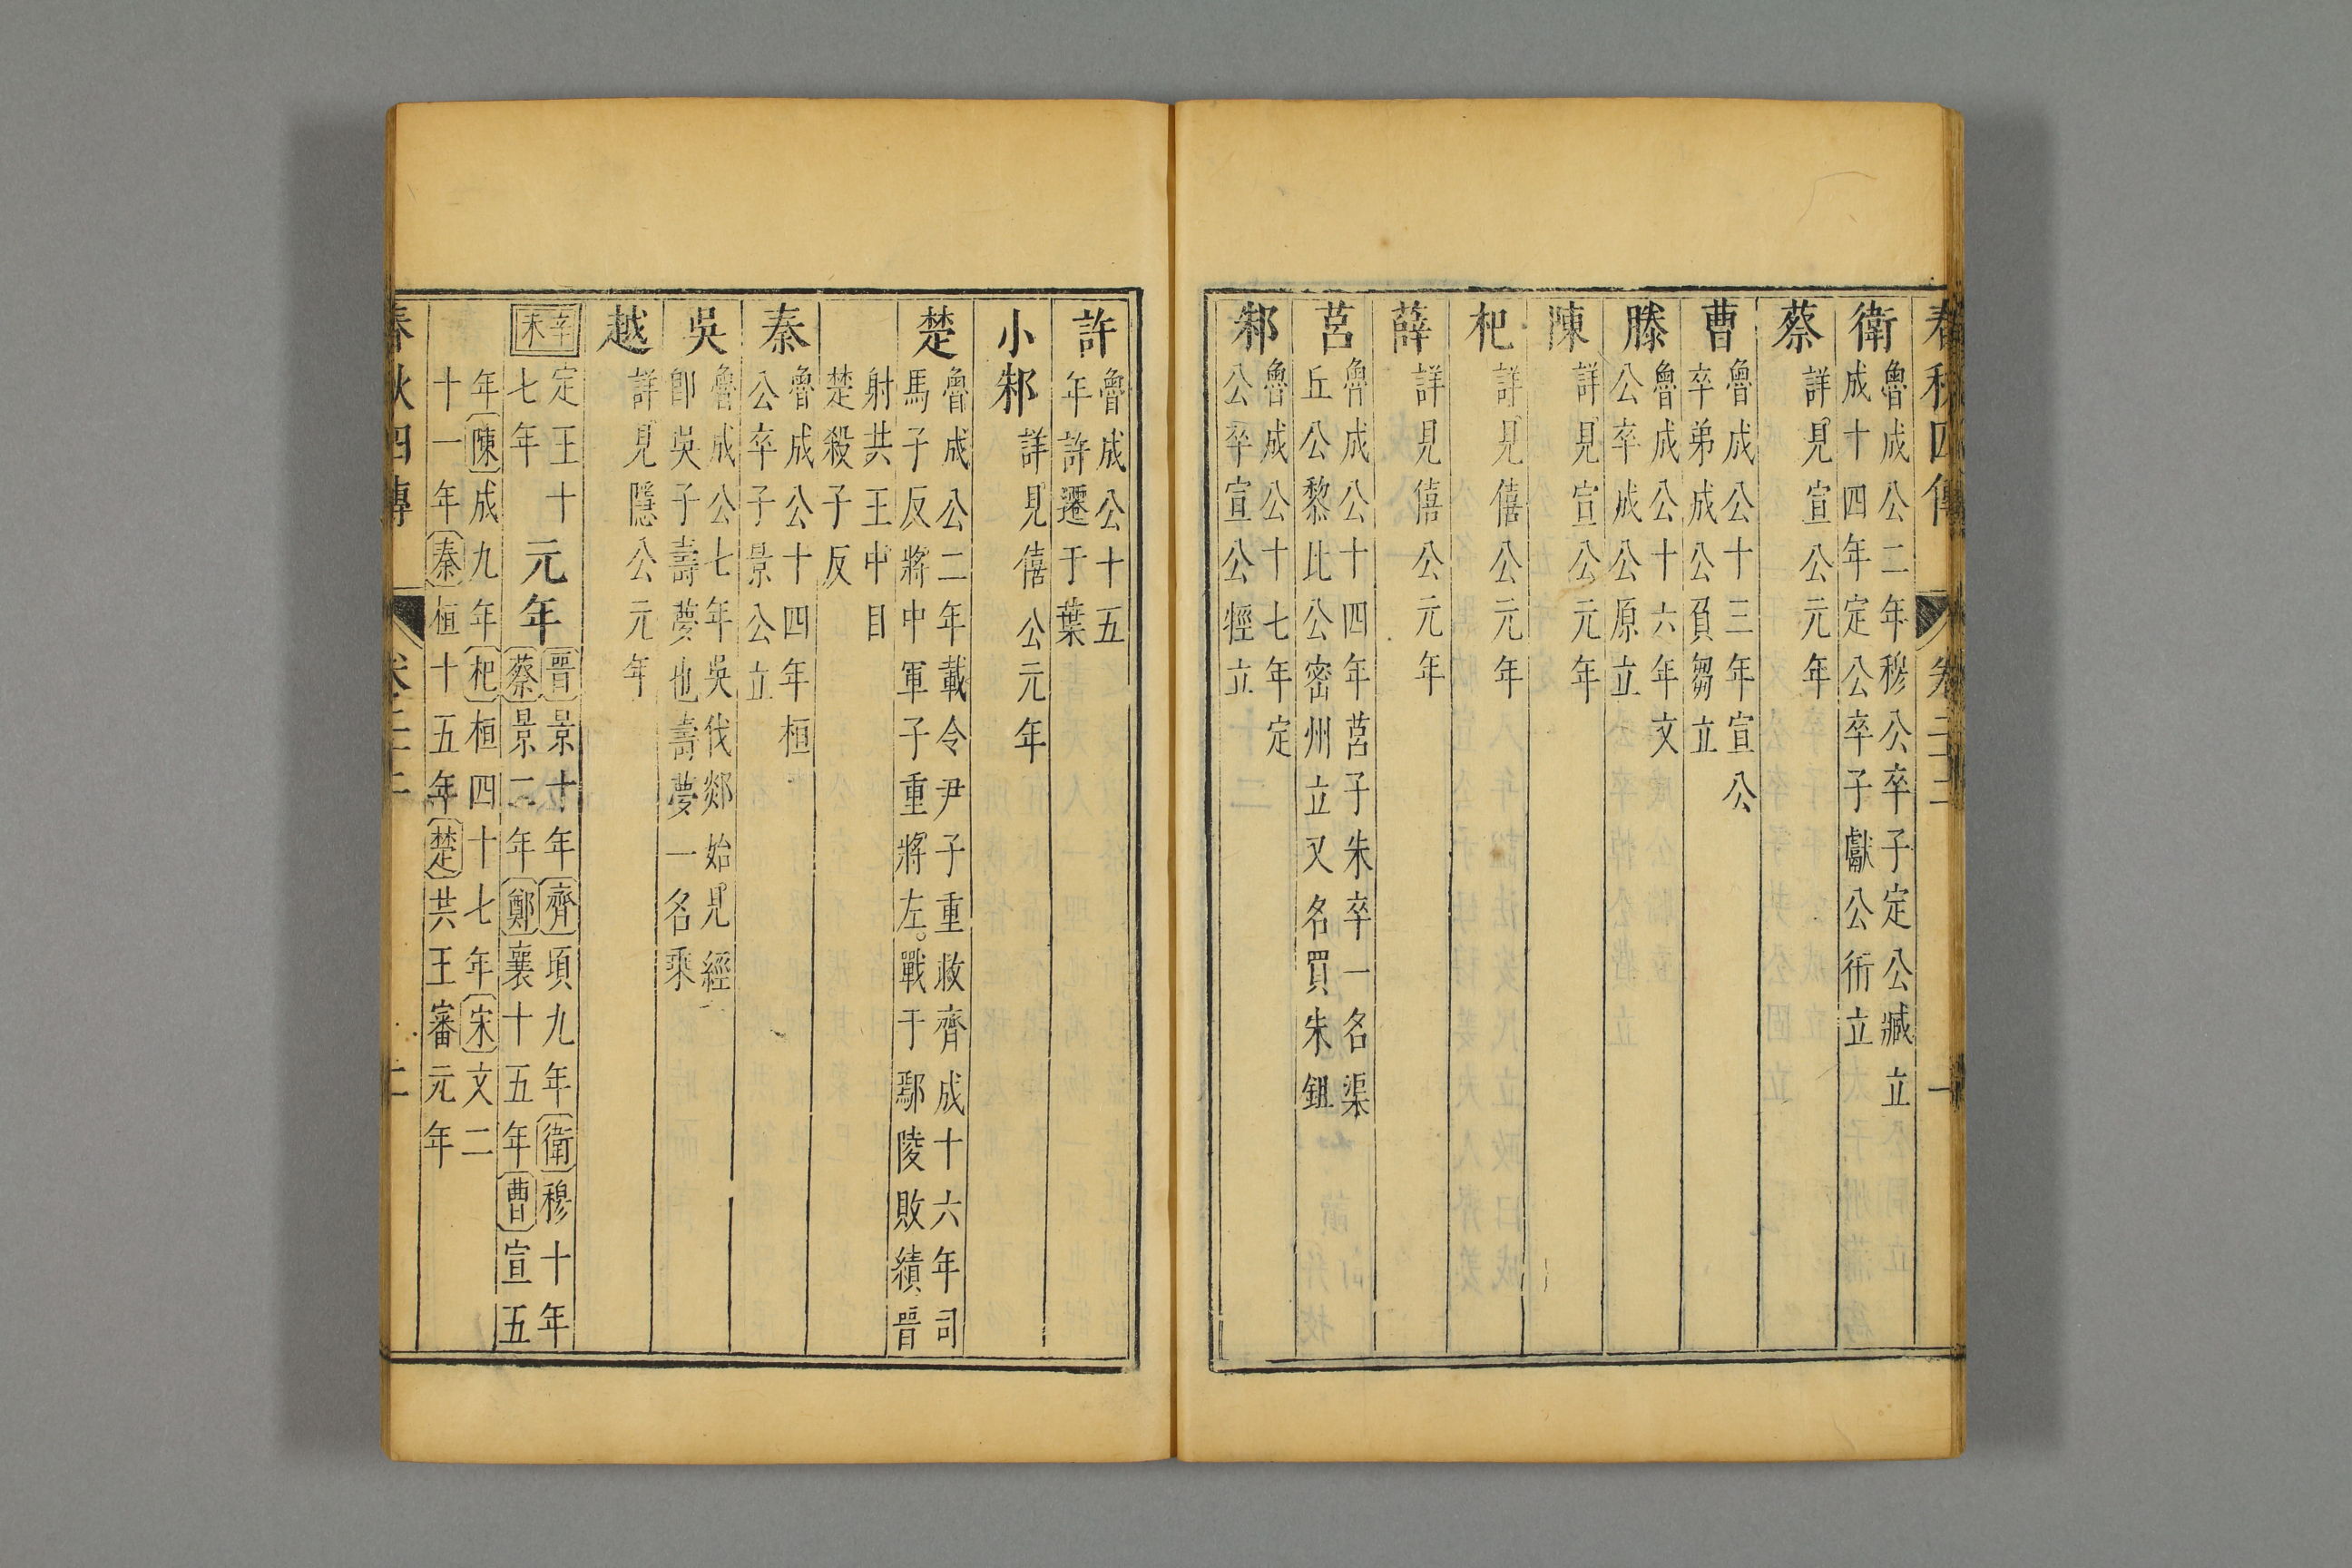 春秋四傳 卷二十二 一
衛 魯成公二年穆公卒子定公臧立
成十四年定公卒子獻公衎立
蔡 詳見宣公元年
曹 魯成公十三年宣公
卒弟成公負芻立
滕 魯成公十六年文
公卒成公原立
陳 詳見宣公元年
杞 詳見僖公元年
薛 詳見僖公元年
莒 魯成公十四年莒子朱卒一名渠
丘公黎比公密州立又名買朱鉏
邾 魯成公十七年定
公卒宣公牼立
許 魯成公十五
年許遷于葉
小邾 詳見僖公元年
楚 魯成公二年載令尹子重救齊成十六年司
馬子反將中軍子重將左戰于鄢陵敗績晉
射共王中目
楚殺子反
秦 魯成公十四年桓
公卒子景公立
吳 魯成公七年吳伐郯始見經
卽吳子壽夢也壽夢一名乘
越 詳見隱公元年
辛未 定王十
七年
元年 晉景十年齊頃九年衛穆十年
蔡景二年鄭襄十五年曹宣五
年陳成九年杞桓四十七年宋文二
十一年秦桓十五年楚共王審元年
春秋四傳